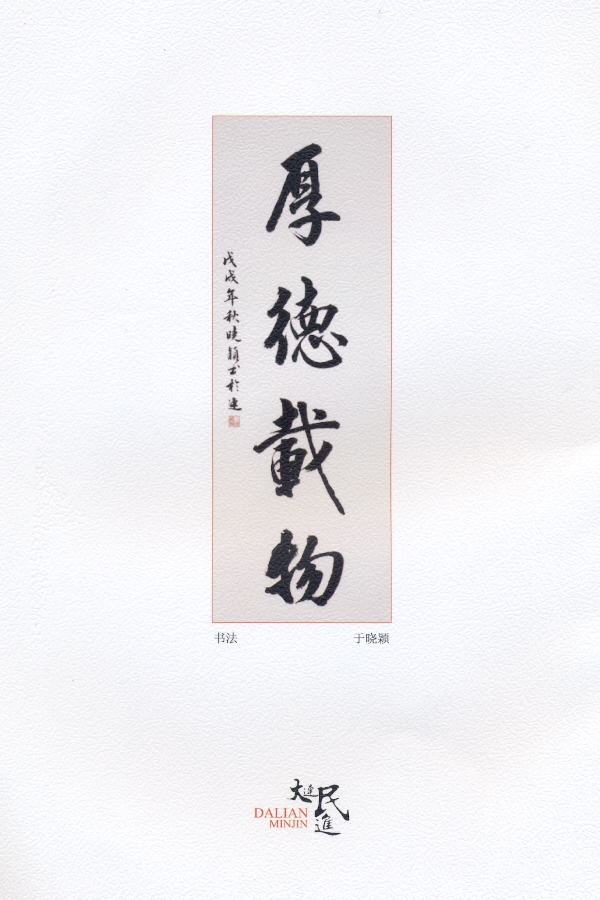 厚德載物
戊戌年秋晓颖书於连
书法
于晓颖
大连民進
DALIAN
MINJIN